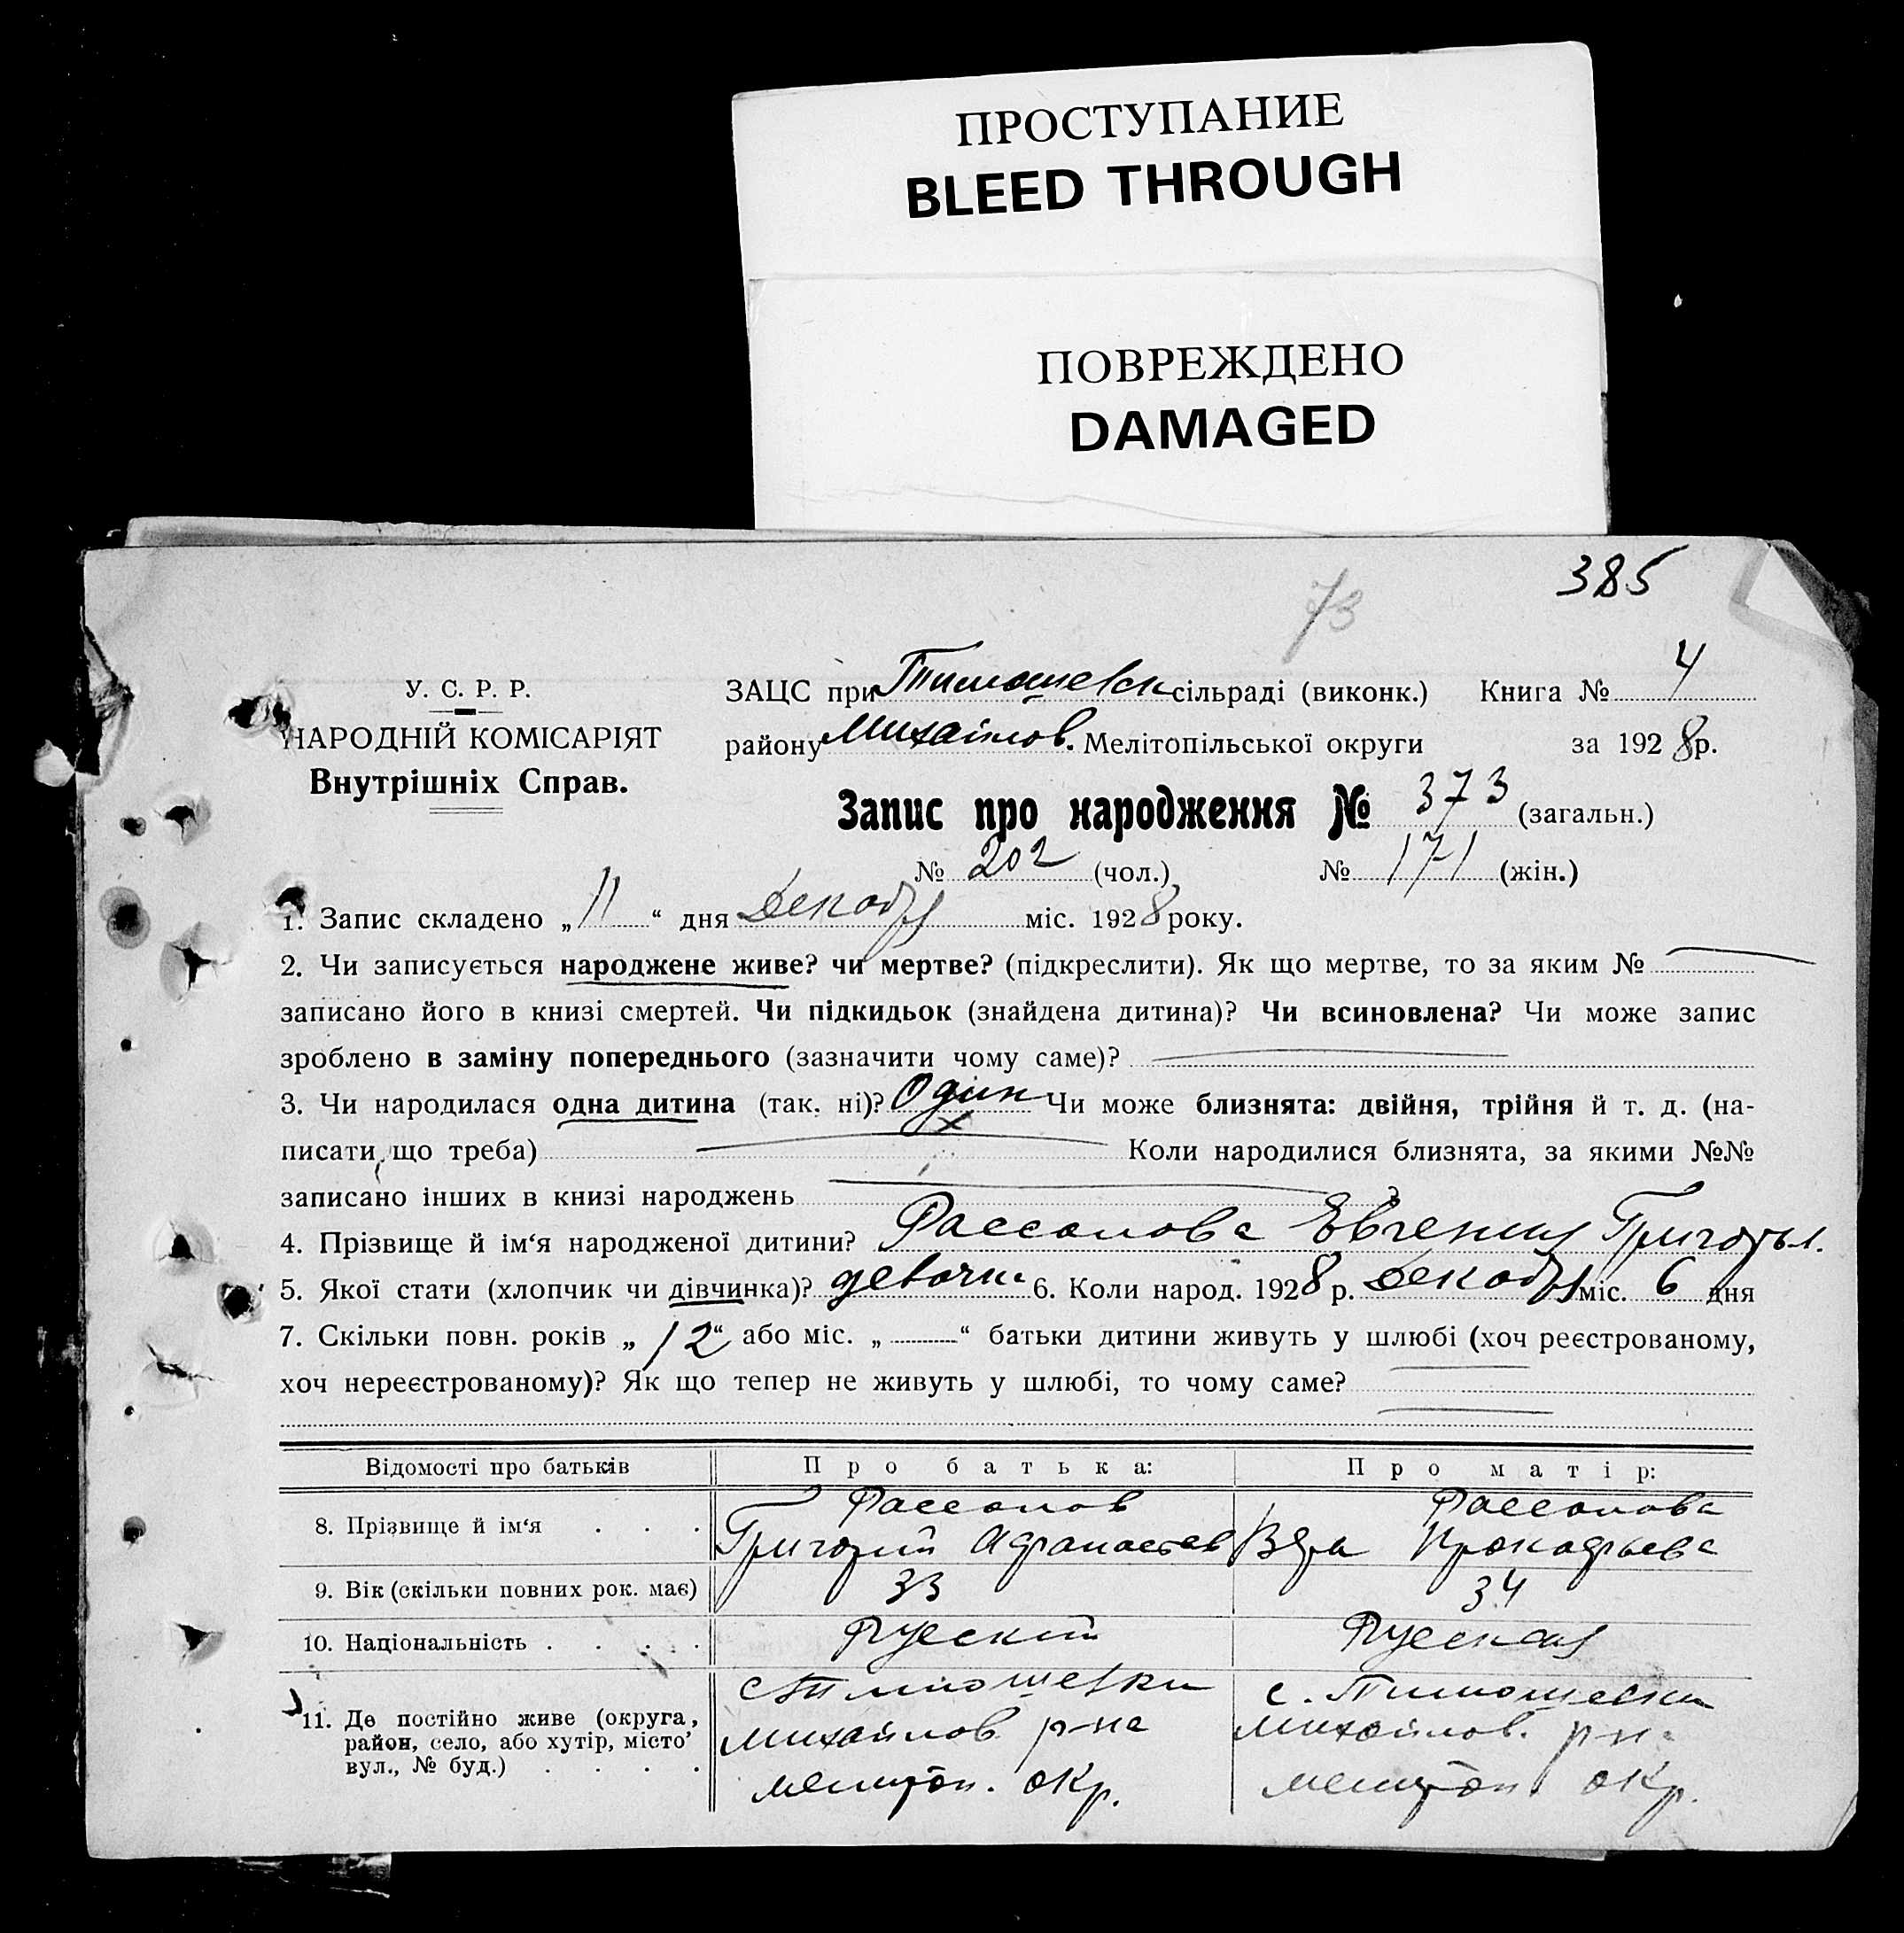 ПРОСТУПАНИЕ
BLEED THROUGH
ПОВРЕЖДЕНО
DAMAGED
385
73
У. С. Р. Р.
НАРОДНІЙ КОМІСАРІЯТ
Внутрішніх Справ.
ЗАЦС при Тимошевск сільраді (виконк.) Книга № 4
району Михайлов. Мелітопільської округи за 1928 р.
Запис про народження № 373 (загальн.)
№ 202 (чол.) № 171 (жін.)
1. Запис складено „11“ дня Декабря міс. 1928 року.
2. Чи записується народжене живе? чи мертве? (підкреслити). Як що мертве, то за яким №
записано його в книзі смертей. Чи підкидьок (знайдена дитина)? Чи всиновлена? Чи може запис
зроблено в заміну попереднього (зазначити чому саме)?
3. Чи народилася одна дитина (так, ні)? Один Чи може близнята: двійня, трійня й т. д. (на-
писати, що треба) Коли народилися близнята, за якими №№
записано інших в книзі народжень
4. Прізвище й ім‘я народженої дитини? Рассолова Евгения Григорьл.
5. Якої стати (хлопчик чи дівчинка)? девочка 6. Коли народ. 1928 р. Декабря міс. 6 дня
7. Скільки повн. років „12“ або міс. „ “ батьки дитини живуть у шлюбі (хоч реєстрованому,
хоч нереєстрованому)? Як що тепер не живуть у шлюбі, то чому саме?
Відомості про батьків Про батька: Про матір:
8. Прізвище й ім‘я . . . Рассолов Рассолова
Григорий Афанасьев Вера Прокофьева
9. Вік (скільки повних рок. має) 33 34
10. Національність . . . . Руский Руская
11. Де постійно живе (округа, с Тимошевки с. Тимошевки
район, село, або хутір, місто Михайлов р-на Михайлов. р-на
вул., № буд.) . . . . мелитоп. окр. мелитоп окр.